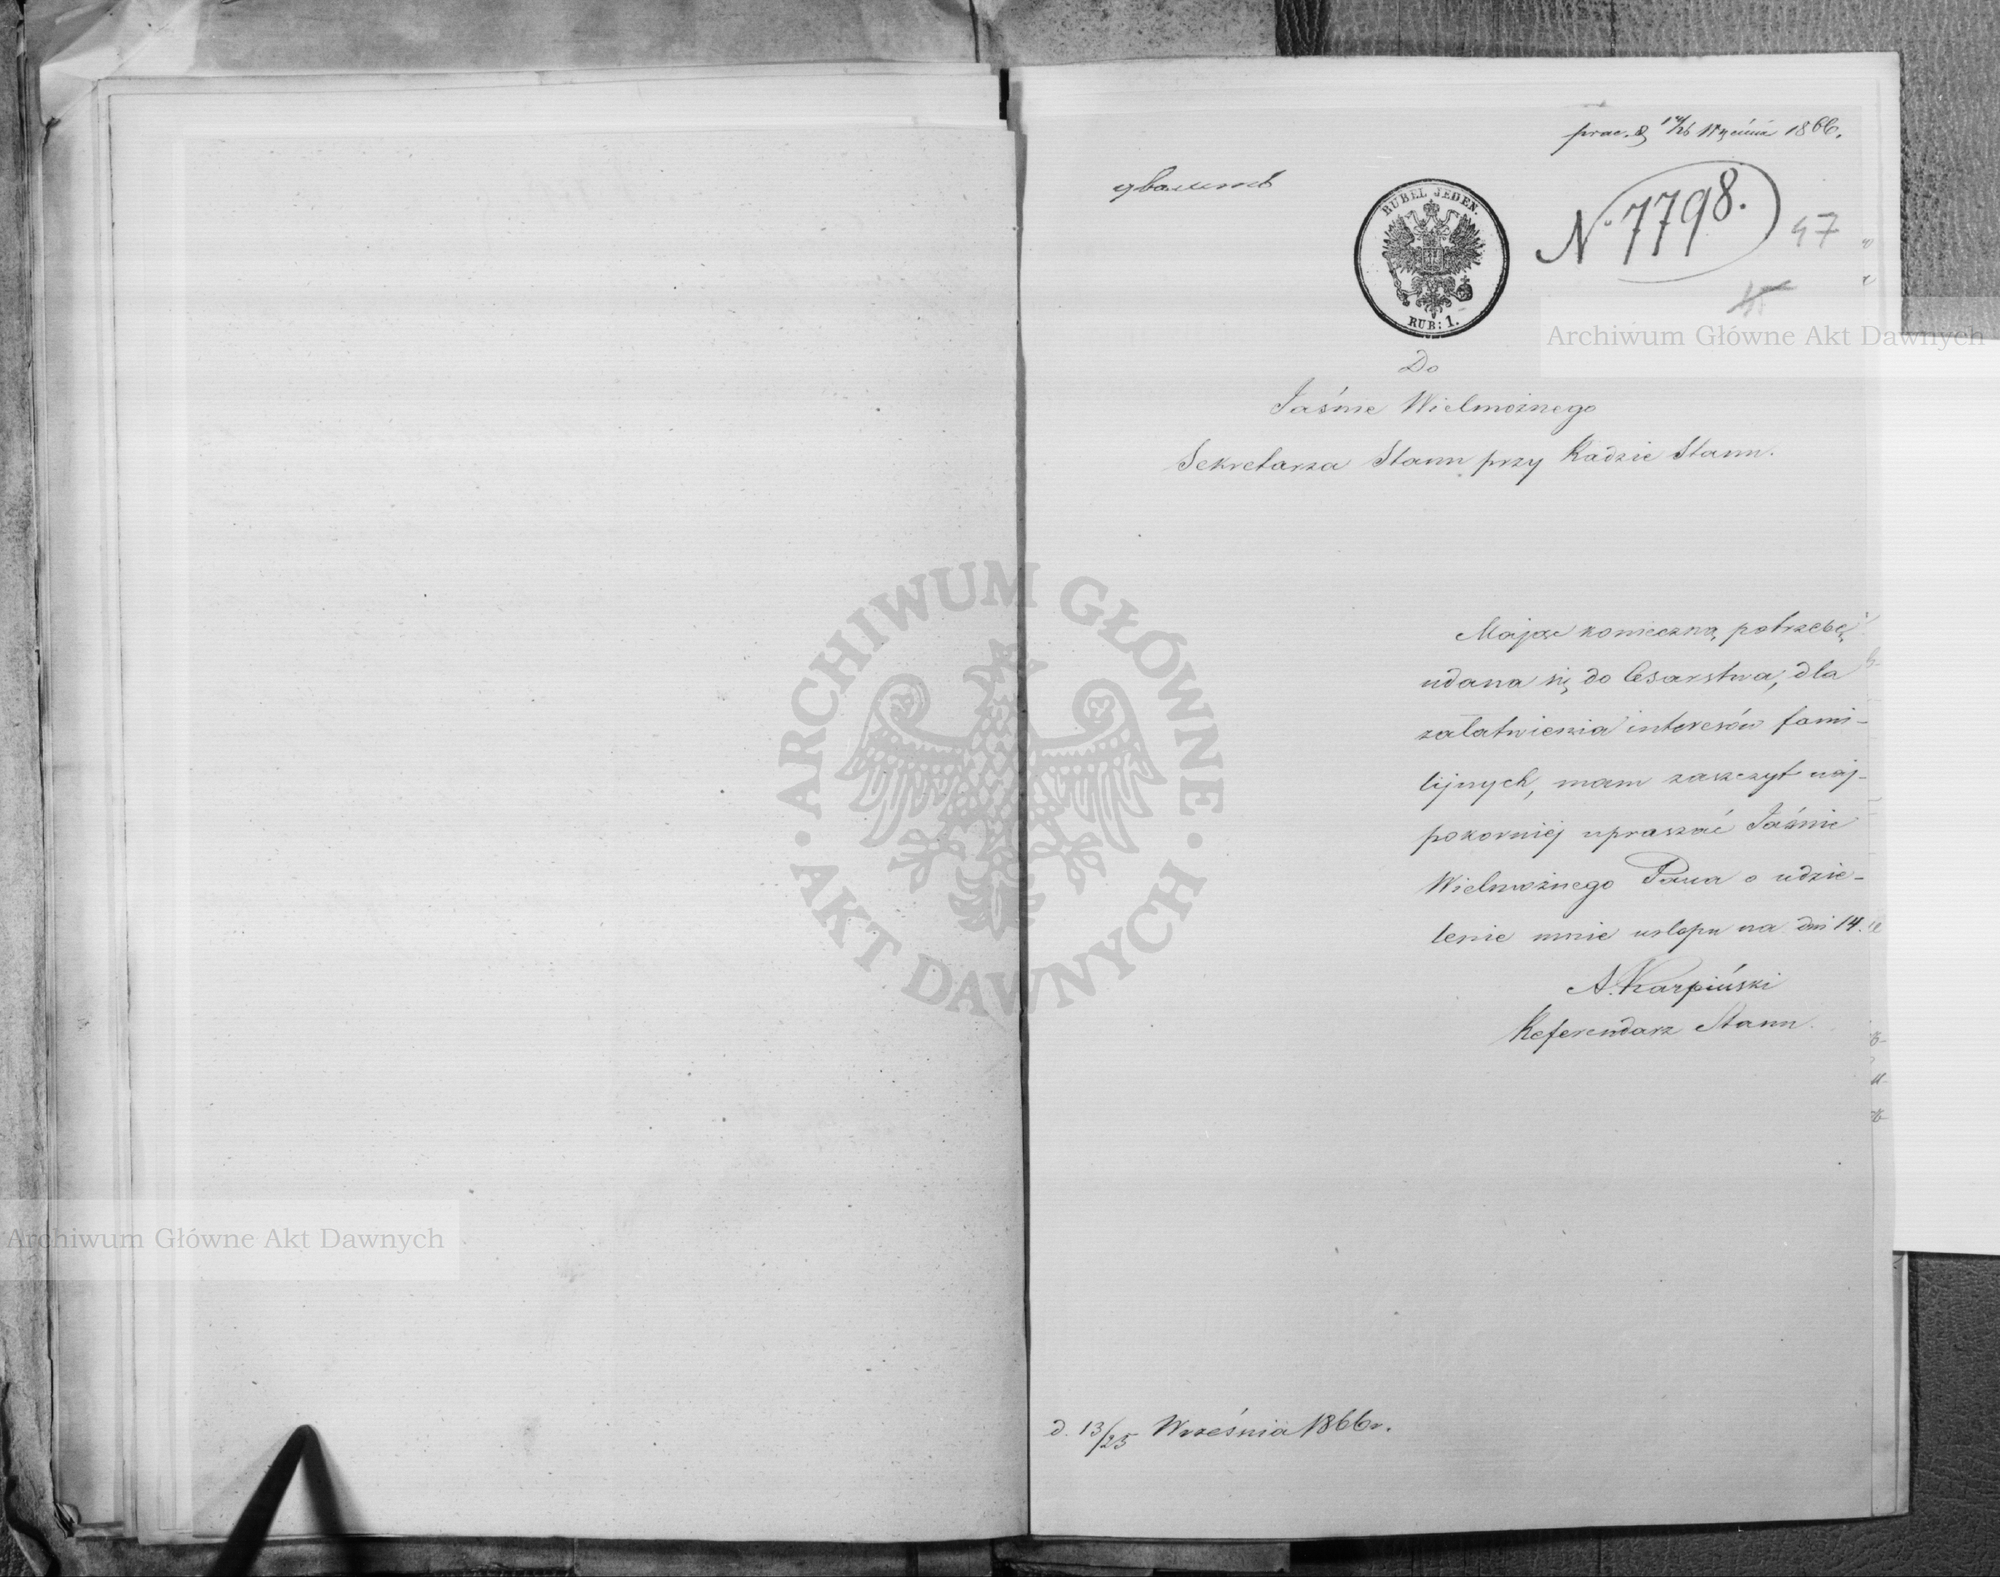 prac. d. 14/26 Września 1866.
уволить
RUBEL JEDEN.
RUB: 1.
N. 7798.
47
45
Do
Jaśnie Wielmożnego
Sekretarza Stanu przy Radzie Stanu.
Mając konieczną potrzebę
udania się do Cesarstwa, dla
załatwienia interesów fami-
lijnych, mam zaszczyt naj-
pokorniej upraszać Jaśnie
Wielmożnego Pana o udzie-
lenie mnie urlopu na dni 14.
A. Karpiński
Referendarz Stanu.
d. 13/25 Września 1866 r.
ARCHIWUM GŁÓWNE
AKT DAWNYCH
Archiwum Główne Akt Dawnych
Archiwum Główne Akt Dawnych